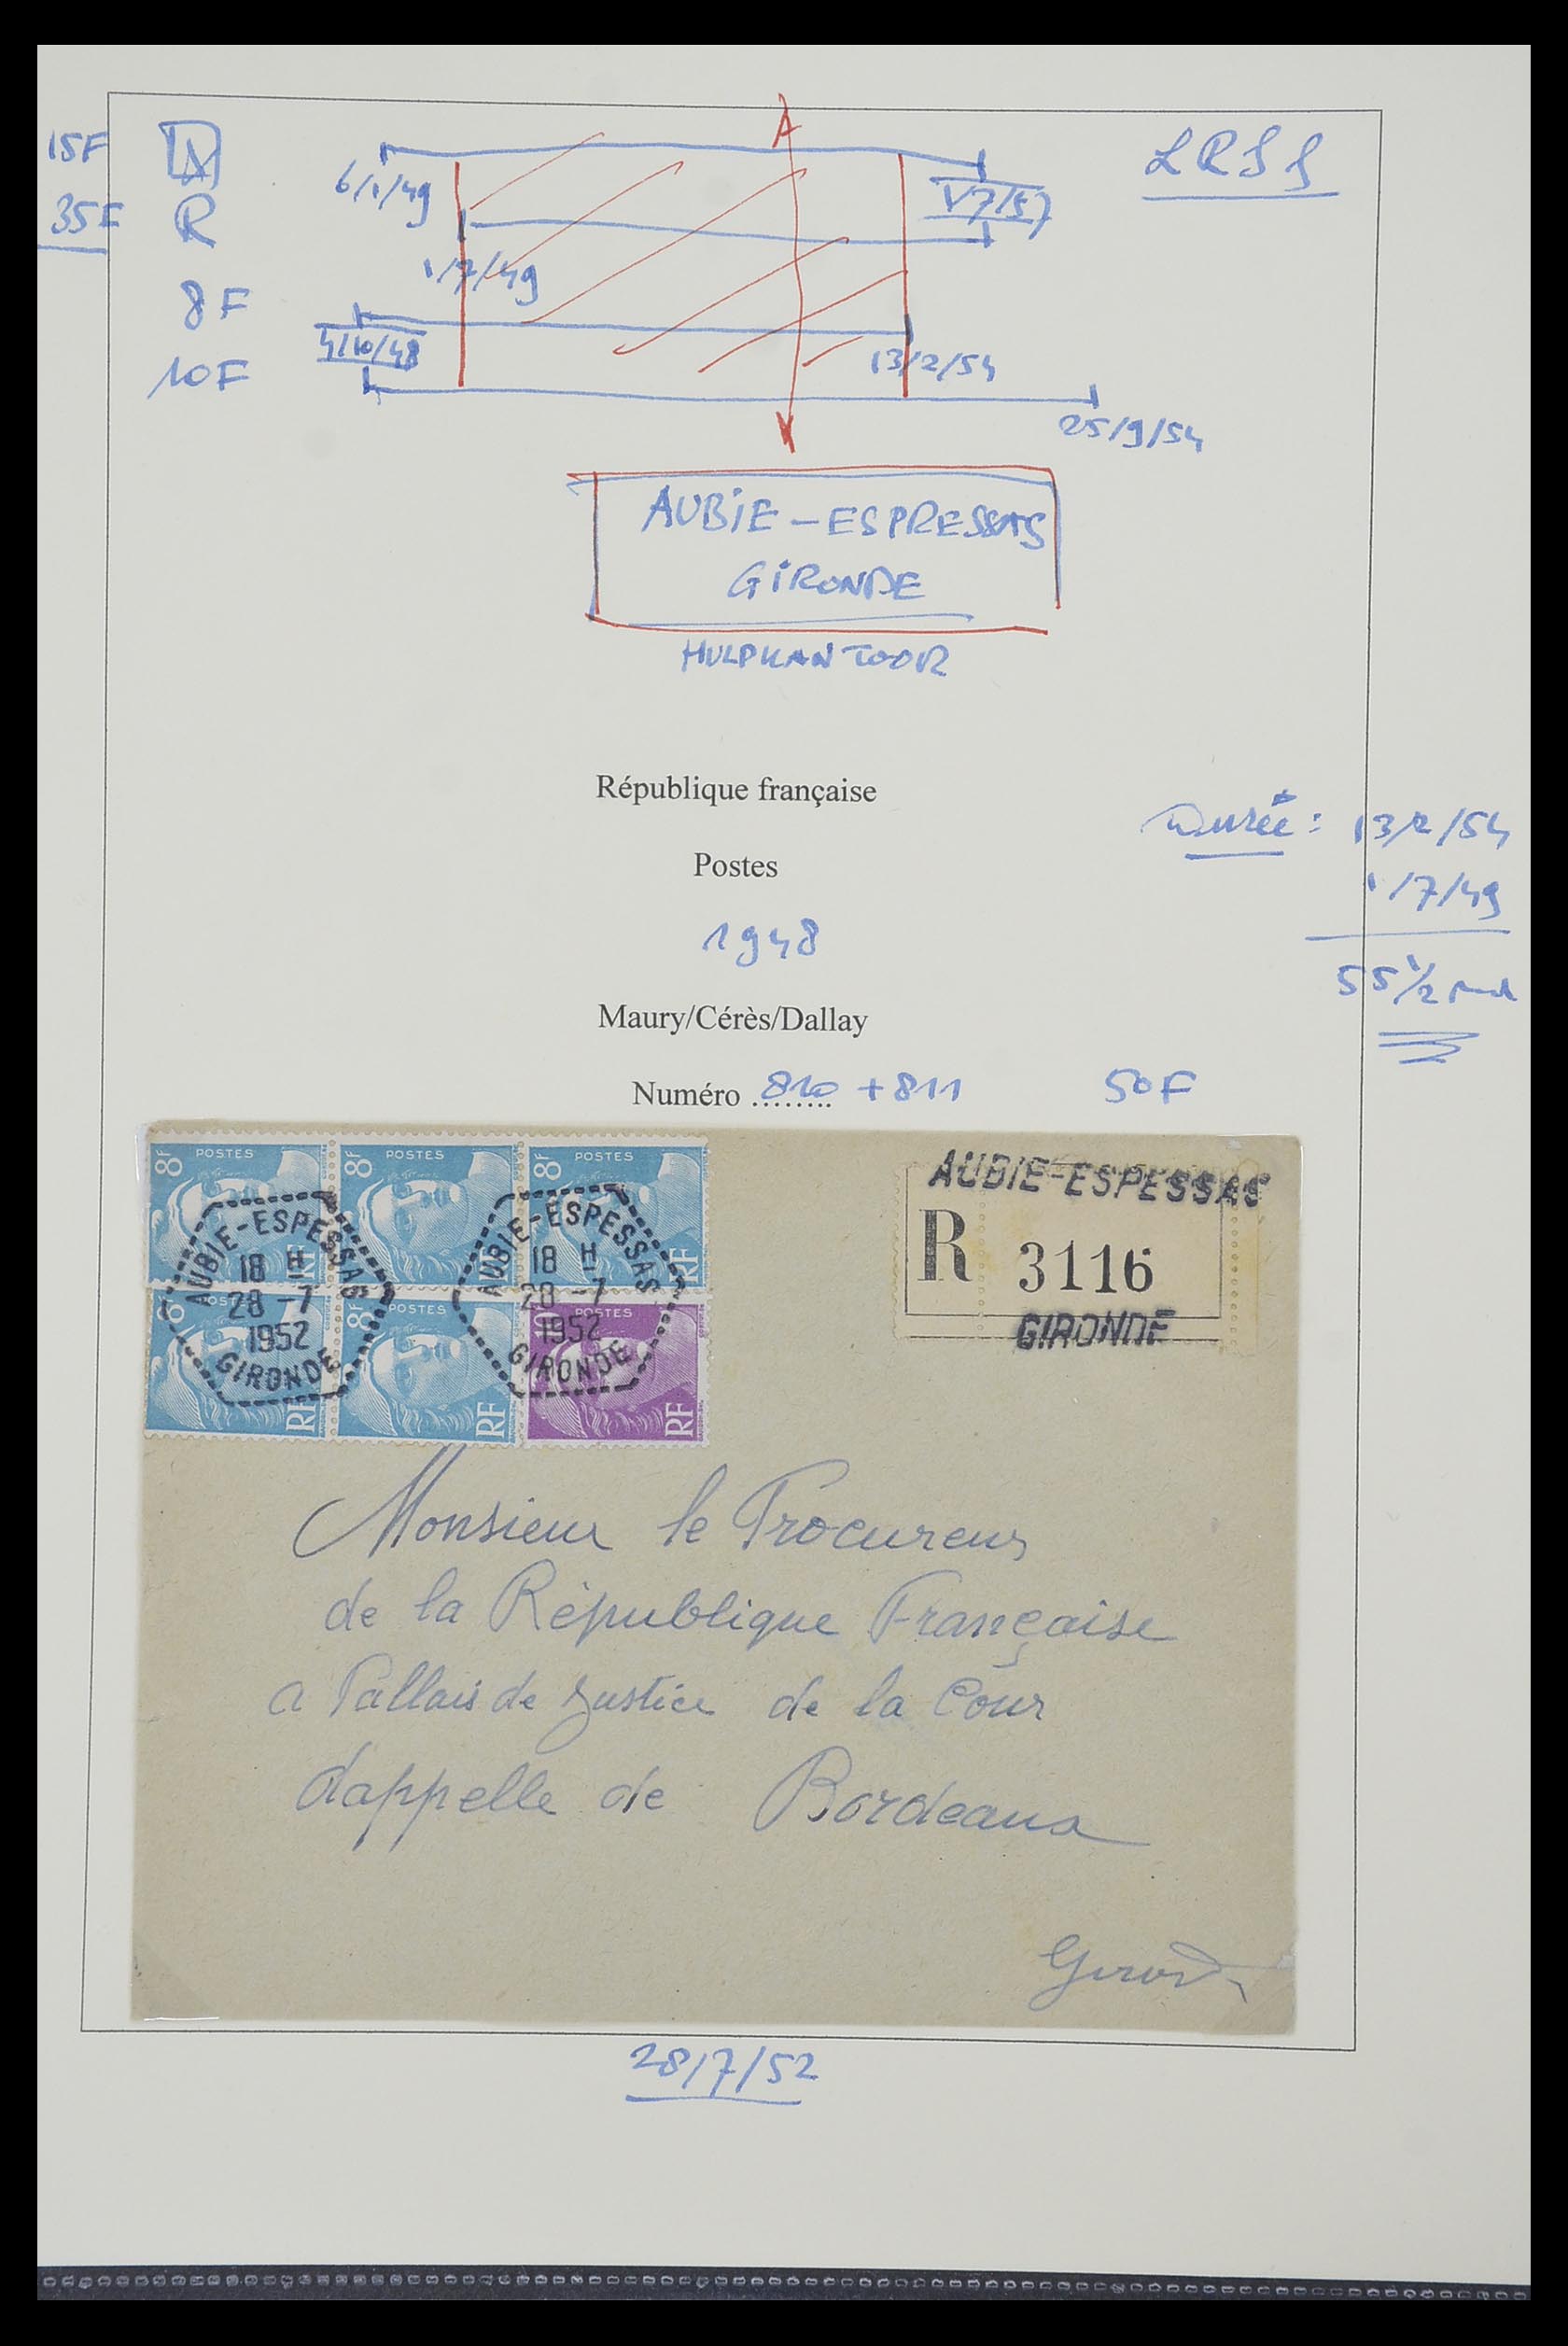 15F
35F R
8F
10F
6/1/49
1/7/49
4/10/48
1/7/57
13/2/54
25/9/54
A
AUBIE-ESPRESSAS
GIRONDE
HULPKANTOOR
République française
Postes
1948
Maury/Cérès/Dallay
Numéro ........ 810 + 811 50F
Durée : 13/2/54
1/7/49
55 1/2
8F POSTES RF
8F POSTES RF
8F POSTES RF
8F POSTES RF
8F POSTES RF
POSTES RF
AUBIE-ESPESSAS
18 H
28 -7
1952
GIRONDE
AUBIE-ESPESSAS
18 H
28 -7
1952
GIRONDE
AUBIE-ESPESSAS
R 3116
GIRONDE
Monsieur le Procureur
de la République Française
a Pallais de Justice de la Cour
dappelle de Bordeaux
28/7/52